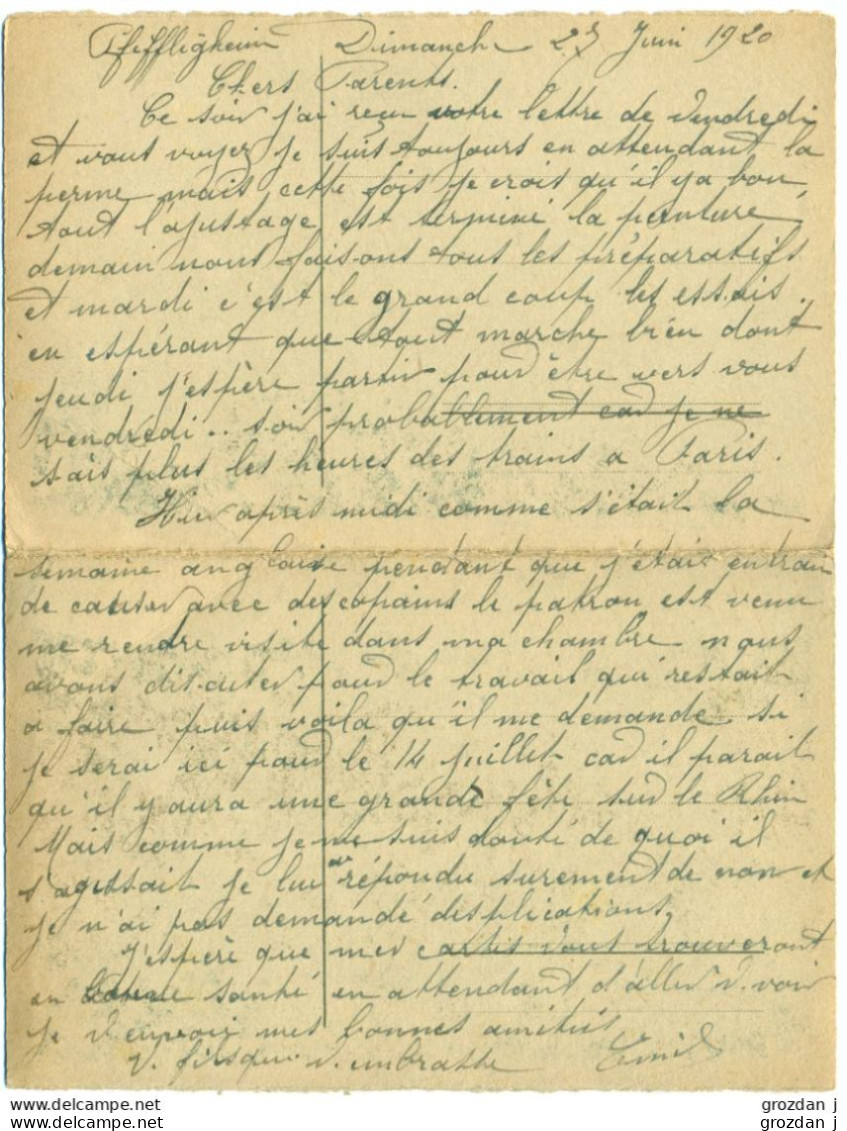 Pfiffligheim Dimanche 27 Juin 1920
Chers Parents.
Ce soir j'ai reçu votre lettre de Vendredi
et vous voyez je suis toujours en attendant la
perme mais cette fois je crois qu'il y a bon,
tout l'ajustage est terminé la peinture,
demain nous faisons tous les préparatifs
et mardi c'est le grand coup les essais.
en espérant que tout marche bien dont
jeudi j'espère partir pour être vers vous
vendredi.. soir probablement car je ne
sais plus les heures des trains a Paris.
Hier après midi comme s'était la
semaine anglaise pendant que j'étais en train
de causer avec des copains le patron est venu
me rendre visite dans ma chambre nous
avons discuter pour le travail qui restait
a faire puis voila qu'il me demande si
je serai ici pour le 14 juillet car il parait
qu'il y aura une grande fête sur le Rhin
Mais comme je me suis douté de quoi il
s'agissait je lui ai répondu surement de non et
je n'ai pas demandé d'esplications,
J'espère que mes cartes vous trouveront
en bonne santé en attendant d'aller v. voir
je v. envoie mes bonnes amitiés
v. fils qui v. embrasse Emile
grozdan j
grozdan j